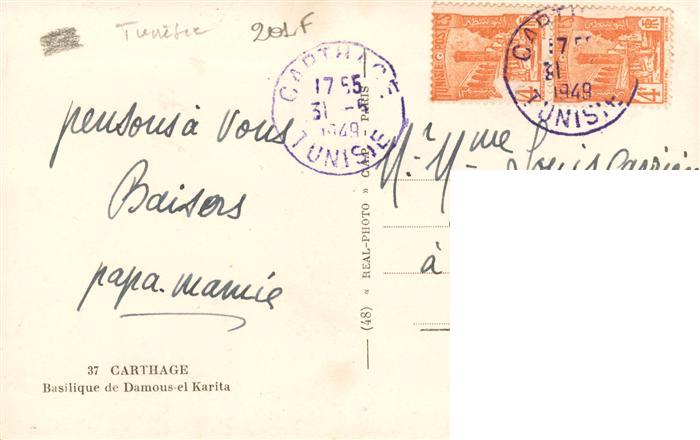 Tunisie
201F
CARTHAGE
17 55
31 -5
1949
TUNISIE
TUNISIE POSTES
RF
4
4
CARTHAGE
17 55
31
1949
TUNISIE
pensons à vous
Baisers
papa. mamie
Mr. Mme Louis
à
(48) « REAL-PHOTO » CAP PARIS
37 CARTHAGE
Basilique de Damous-el Karita